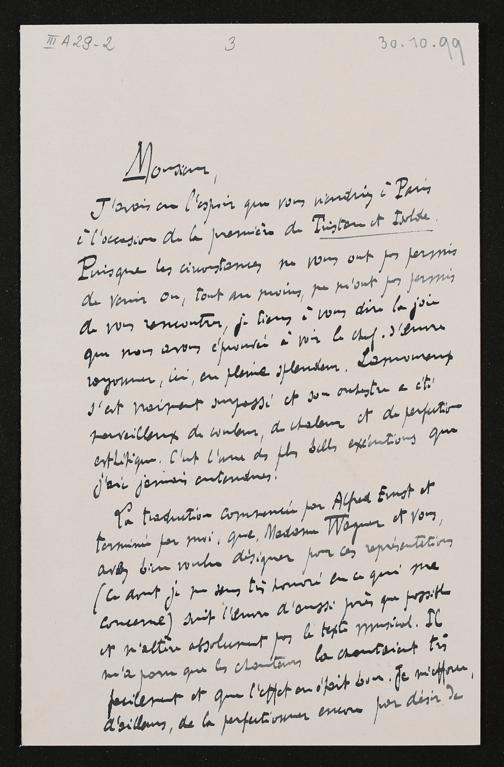 III A 29-2 3 30.10.99
Monsieur,
J'avais eu l'espoir que vous viendriez à Paris
à l'occasion de la première de Tristan et Isolde.
Puisque les circonstances ne vous ont pas permis
de venir ou, tout au moins, ne m'ont pas permis
de vous rencontrer, je tiens à vous dire la joie
que nous avons éprouvée à voir le chef-d'œuvre
rayonner, ici, en pleine splendeur. Lamoureux
s'est vraiment surpassé et son orchestre a été
merveilleux de couleur, de chaleur et de perfection
esthétique. C'est l'une des plus belles exécutions que
j'aie jamais entendues.
La traduction commencée par Alfred Ernst et
terminée par moi, que, Madame Wagner et vous,
avez bien voulu désigner pour ces représentations
(ce dont je me sens très honoré en ce qui me
concerne) suit l'œuvre d'aussi près que possible
et n'altère absolument pas le texte musical. Il
m'a paru que les chanteurs la chantaient très
facilement et que l'effet en était bon. Je m'efforce,
d'ailleurs, de la perfectionner encore par désir de